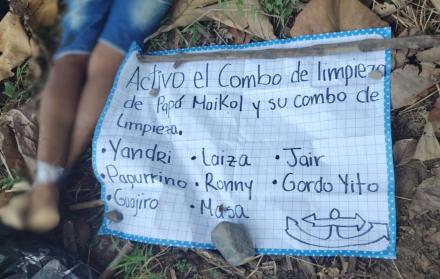 Activo el Combo de limpieza
de Papá Maikol y su combo de
Limpieza.
• Yandri • Laiza • Jair
• Papurrino • Ronny • Gordo Yito
• Guajiro • Masa